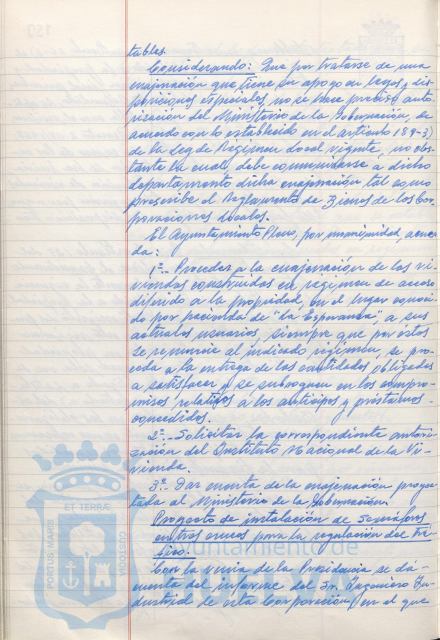 tables.
Considerando: Que por tratarse de una
enajenación que tiene su apoyo en leyes y dis-
posiciones especiales, no se hace preciso auto-
rización del Ministerio de la Gobernación, de
acuerdo con lo establecido en el artículo 189-3)
de la Ley de Régimen Local vigente, no obs-
tante lo cual, debe comunicarse a dicho
departamento dicha enajenación tal como
prescribe el Reglamento de Bienes de las Cor-
poraciones Locales.
El Ayuntamiento Pleno, por unanimidad, acuer-
da:
1º.- Proceder a la enajenación de las vi-
viendas construidas en régimen de acceso
diferido a la propiedad, en el lugar conoci-
do por hacienda de "La Esperanza", a sus
actuales usuarios, siempre que por éstos
se renuncie al indicado régimen, se pro-
ceda a la entrega de las cantidades obligadas
a satisfacer y se subroguen en los compro-
misos relativos a los anticipos y préstamos
concedidos.
2º.- Solicitar la correspondiente autori-
zación del Instituto Nacional de la Vi-
vienda.
3º.- Dar cuenta de la enajenación proyec-
tada al Ministerio de la Gobernación.
Proyecto de instalación de Semáforos
en tres cruces para la regulación del Trá-
fico.
Con la venia de la Presidencia se da
cuenta del informe del Sr. Ingeniero In-
dustrial de esta Corporación, en el que
PORTUS MARIS
ET TERRÆ
CUSTODIA
Ayuntamiento de